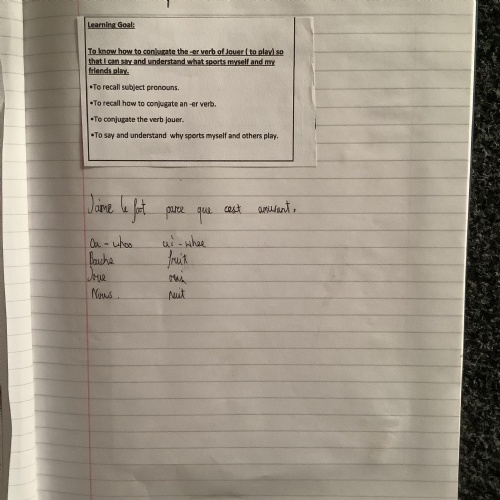 Learning Goal:
To know how to conjugate the -er verb of Jouer ( to play) so
that I can say and understand what sports myself and my
friends play.
•To recall subject pronouns.
•To recall how to conjugate an -er verb.
•To conjugate the verb jouer.
•To say and understand why sports myself and others play.
J'aime le foot parce que cest amusant.
ou - whoo ui - whee
Douche fruit
Joue oui
Nous. nuit